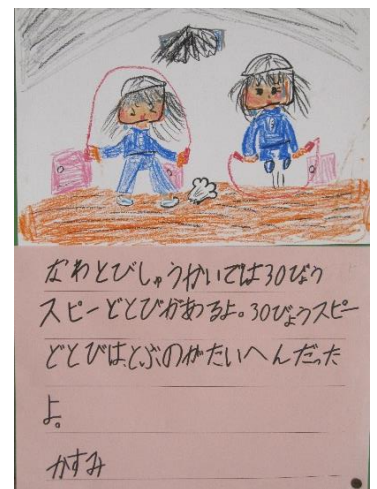 なわとびしゅうかいでは30びょう
スピードとびがあるよ。30びょうスピー
ドとびは、とぶのがたいへんだった
よ。
かすみ